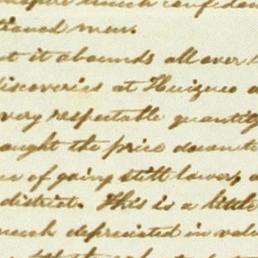 much confiden
tioned men.
t it abounds all over
iscoveries at Huizuco
very respectable quantity
aught the price down to
e of going still lower,
district. This is a little
much depreciated in val